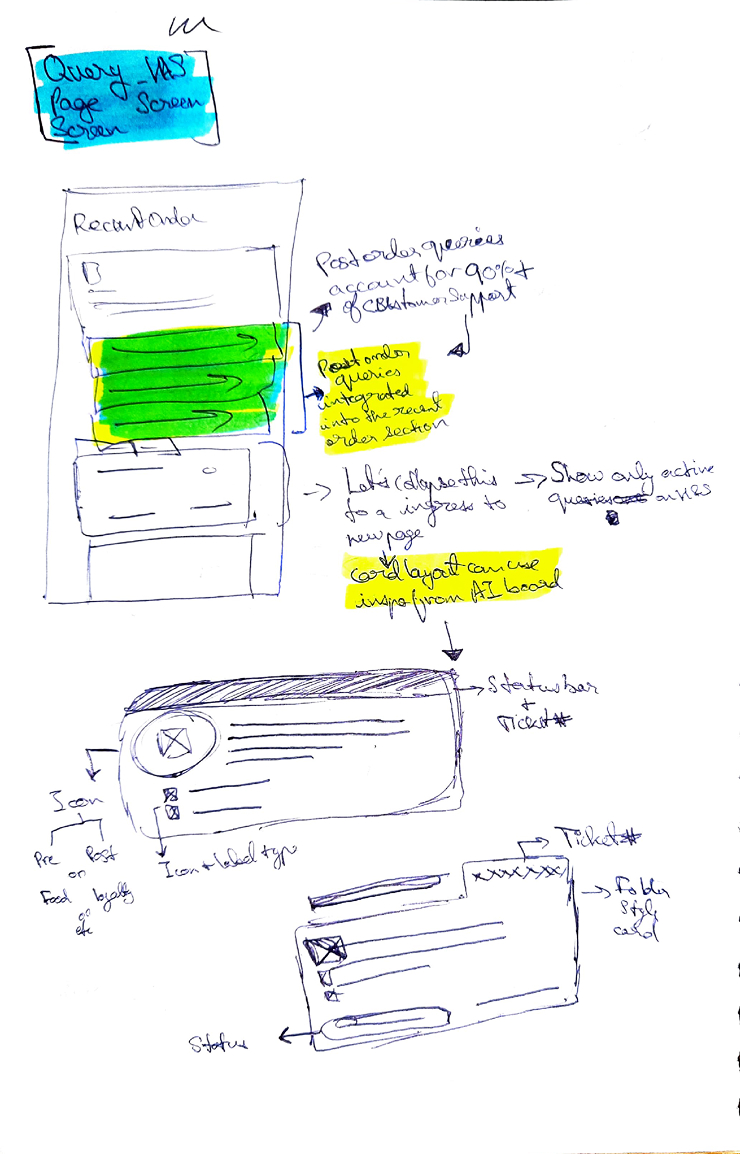 Query_H&S
Page Screen
Screen
Recent Order
Post order queries
account for 90%+
of Customer Support
Post order
queries
integrated
into the recent
order section
Let's collapse this
to a ingress to
new page
Show only active
queries on H&S
card layout can use
inspo from AI board
Status bar
+
Ticket#
Icon
Pre Post
or
Food loyalty
or
etc
Icon + label type
Ticket#
xxxxxxx
Folder
Style
card
Status